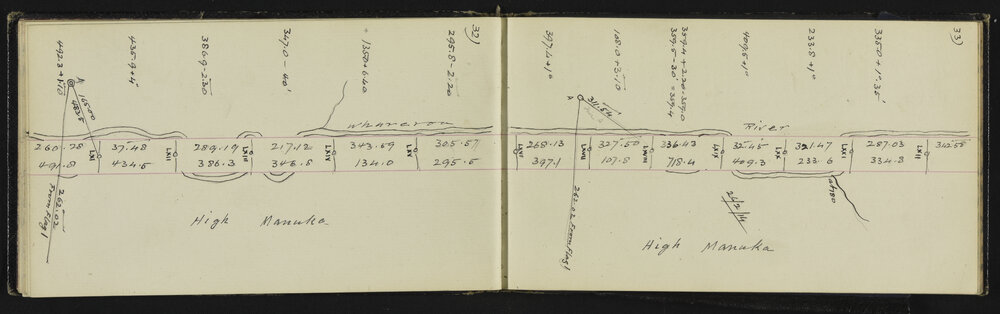 32)
492.3 + 1°10
435.9 + 4°
386.9 - 2.30
347.0 - 40'
135.0 + 6.40
295.8 - 2.20
A
105.00
Whareroa
260.28
37.48
289.19
217.12
343.59
305.57
LXI
LXII
LXIII
LXIV
LXV
491.8
434.5
386.3
346.8
134.0
295.5
262.02
From Flag 1
High Manuka
33)
397.1 + 1°
108.0 + 3°.10
359.4 + 2.20 - 359.0
359.5 - 30' = 359.4
409.5 + 1°
233.8 + 1°
335.0 + 1°.35'
A
311.54
River
268.13
327.50
336.43
32.45
321.47
287.03
342.55
LXVI
LXVII
LXVIII
LXIX
LXX
LXXI
LXXII
397.1
107.8
718.4
409.3
233.6
334.8
262.02 From Flag 1
High Manuka